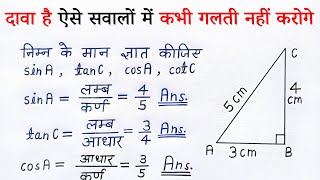 दावा है ऐसे सवालों में कभी गलती नहीं करोगे
निम्न के मान ज्ञात कीजिए
sinA , tanC , cosA , cotC
sinA = लम्ब/कर्ण = 4/5 Ans.
tanC = लम्ब/आधार = 3/4 Ans.
cosA = आधार/कर्ण = 3/5 Ans.
C
5cm
4 cm
A 3cm B